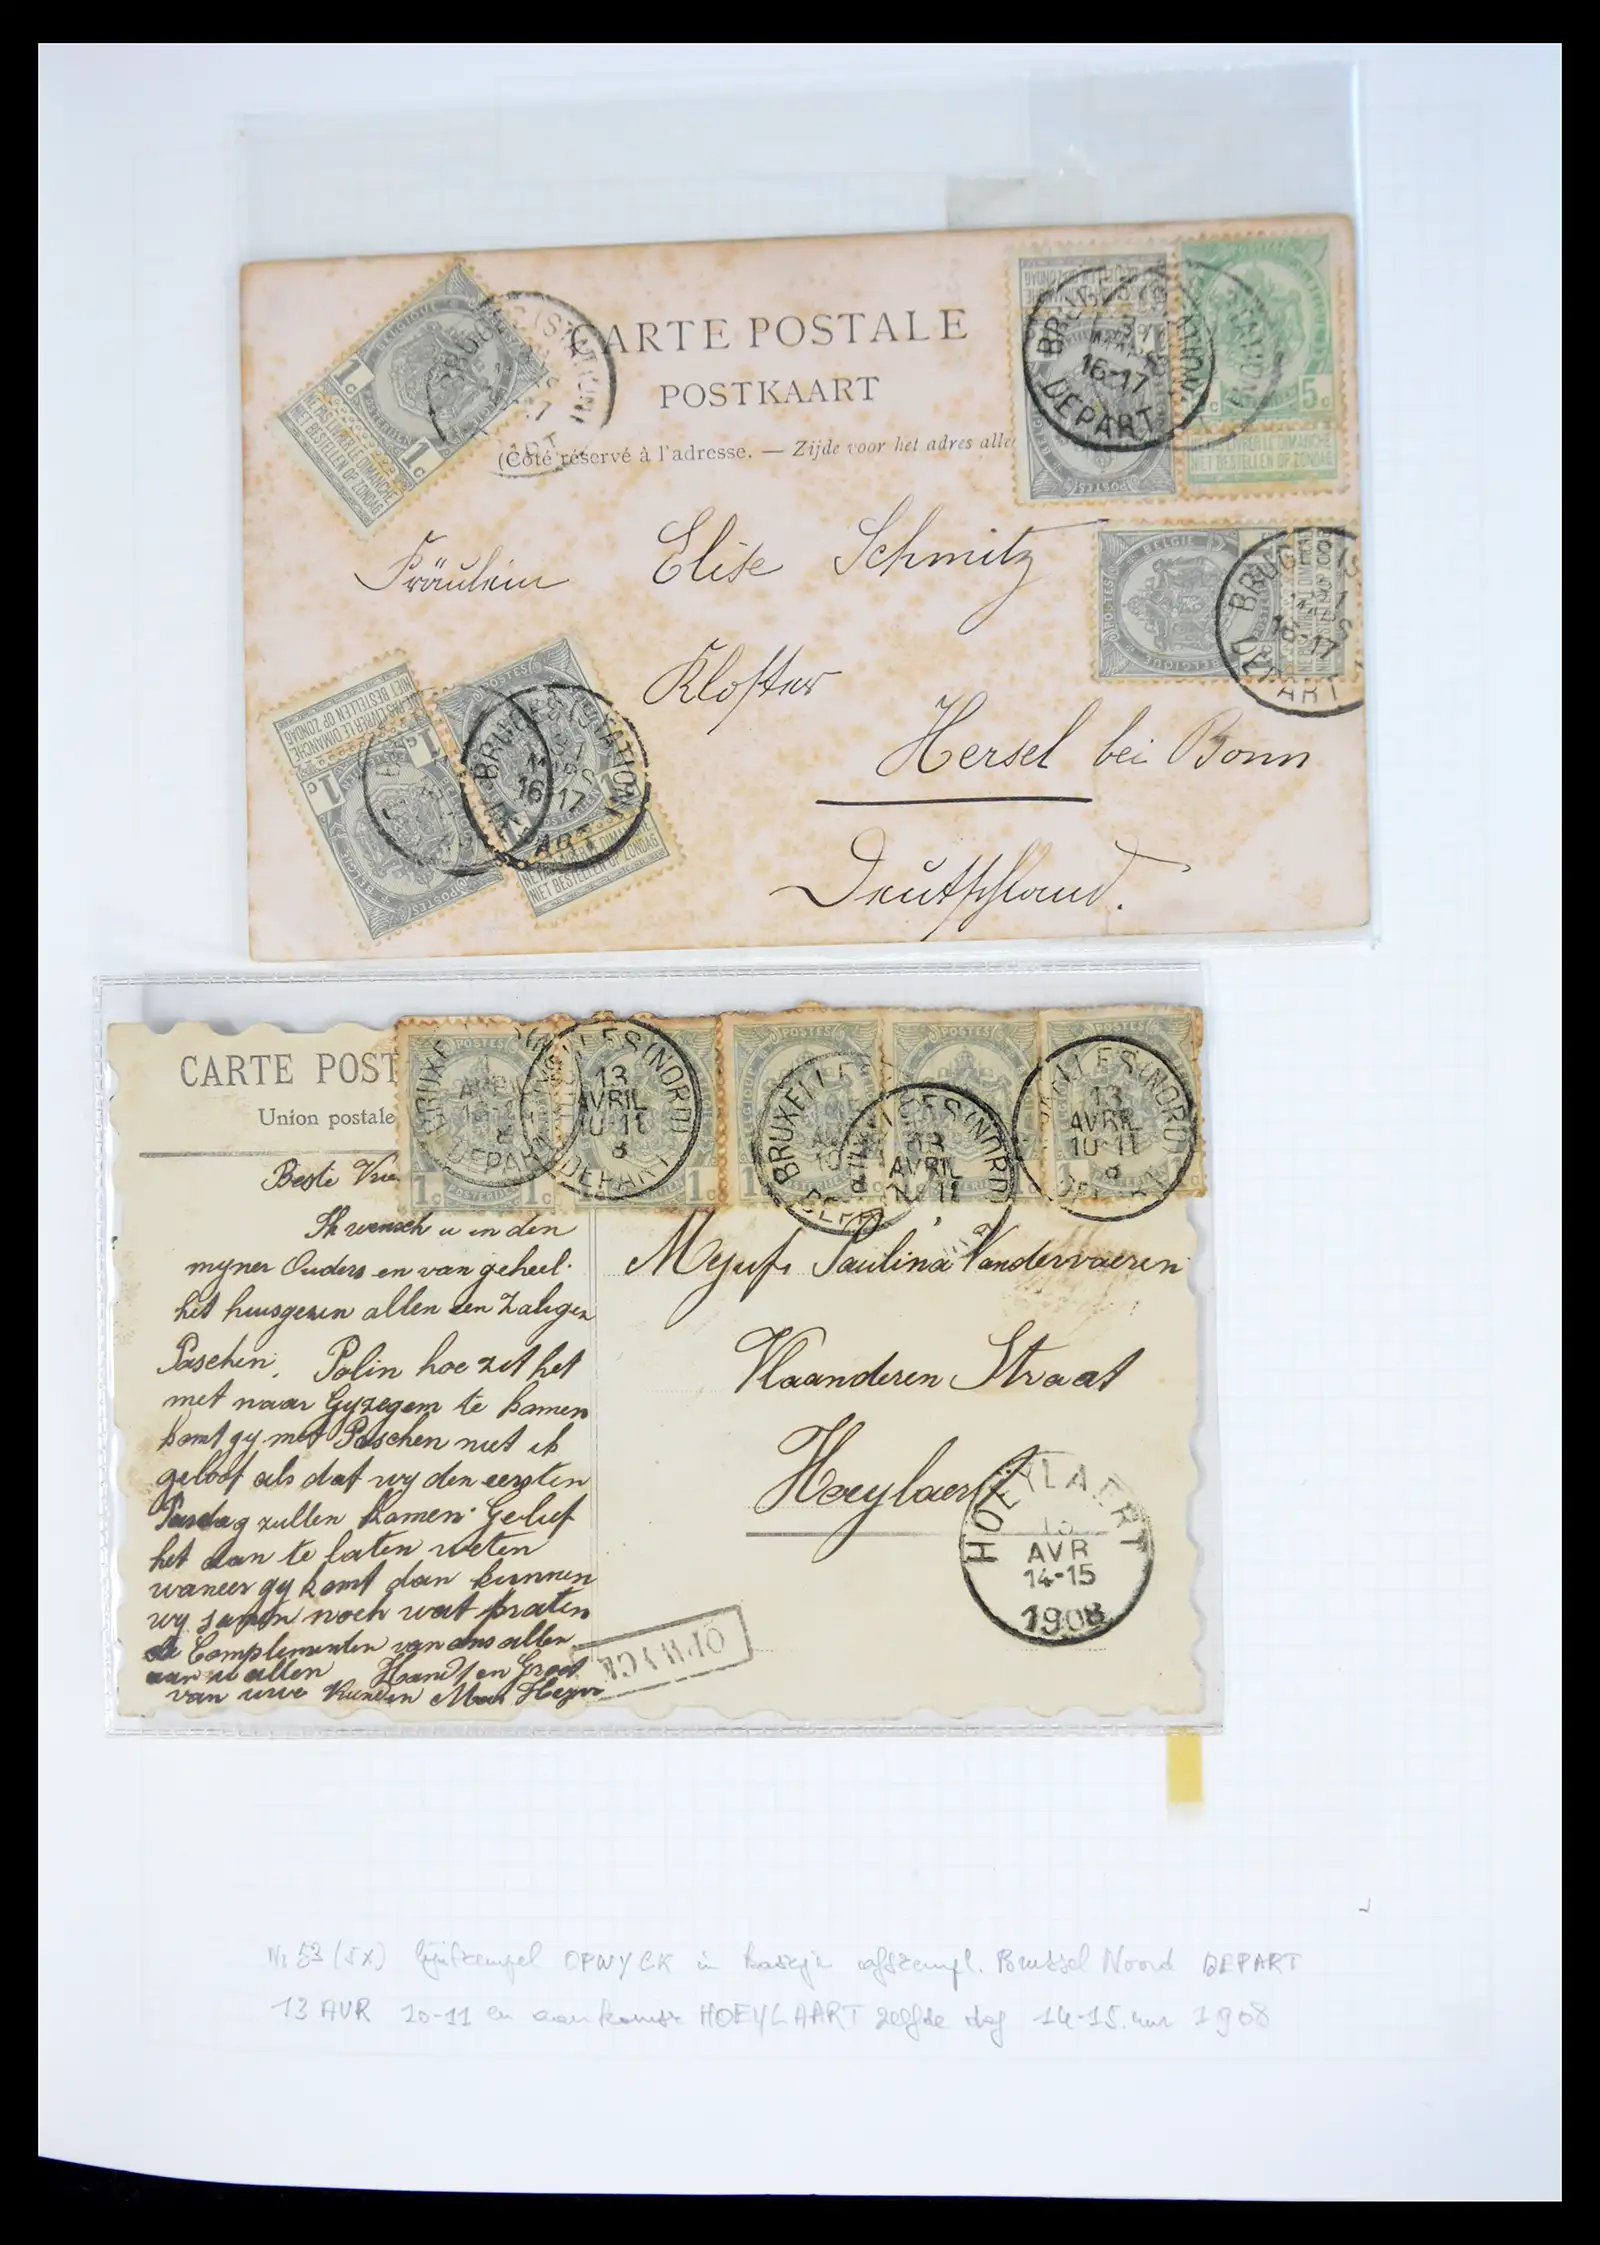 CARTE POSTALE
POSTKAART
(Côté réservé à l'adresse. — Zijde voor het adres alle
Fräulein Elise Schmitz
Kloster
Hersel bei Bonn
Deutschland.
BRUGES (STATION)
16-17
DEPART
POSTES
BELGIQUE
BELGIE
POSTERIJEN
1c 1c
5c
NE PAS LIVRER LE DIMANCHE
NIET BESTELLEN OP ZONDAG
CARTE POST
Union postale
BRUXELLES (NORD)
13
AVRIL
10-11
8
DEPART
Beste Vrie
Ik wensch u en den
myner Ouders en van geheel
het huisgezin allen een Zaligen
Paschen. Polin hoe zit het
met naar Gyzegem te komen
komt gy met Paschen niet ik
geloof als dat wy den eersten
zullen komen. Gelief
het dan te laten weten
waneer gy komt dan kunnen
wy samen noch wat praten
de Complementen van ons allen
aan u allen Handt en Groet
van uwe
Mejuf. Paulina Vandervaeren
Vlaanderen Straat
Hoeylaert
HOEYLAERT
13
AVR
14-15
1908
OPWYCK
Nr 53 (5x) lijnstempel OPWYCK in kastje afstempl. Brussel Noord DEPART
13 AVR 10-11 en aankomst HOEYLAART zelfde dag 14-15 uur 1908